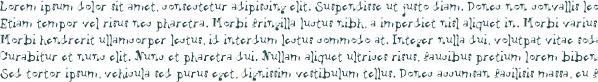 Lorem ipsum dolor sit amet, consectetur adipiscing elit. Suspendisse ut justo diam. Donec non convallis leo
Etiam tempor vel risus nec pharetra. Morbi fringilla luctus nibh, a imperdiet nisl aliquet in. Morbi varius
Morbi hendrerit ullamcorper lectus, id interdum lectus commodo at. Integer nulla dui, volutpat vitae soda
Curabitur et nunc elit. Nunc et pharetra dui. Nullam aliquet ultrices risus, faucibus pretium lorem biben
Sed tortor ipsum, vehicula sed purus eget, dignissim vestibulum tellus. Donec accumsan facilisis massa, eu s